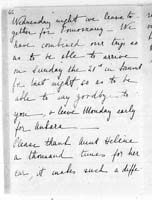 "Wednesday night we leave to
gether for
have combined our trip so
as to be able to arrive
on Sunday the 21st in
for last night so as to be
able to say goodby to
you, & leave Monday early
for Ankara
Please thank Aunt Helene
a thousand times for her
car it makes such a diffe-